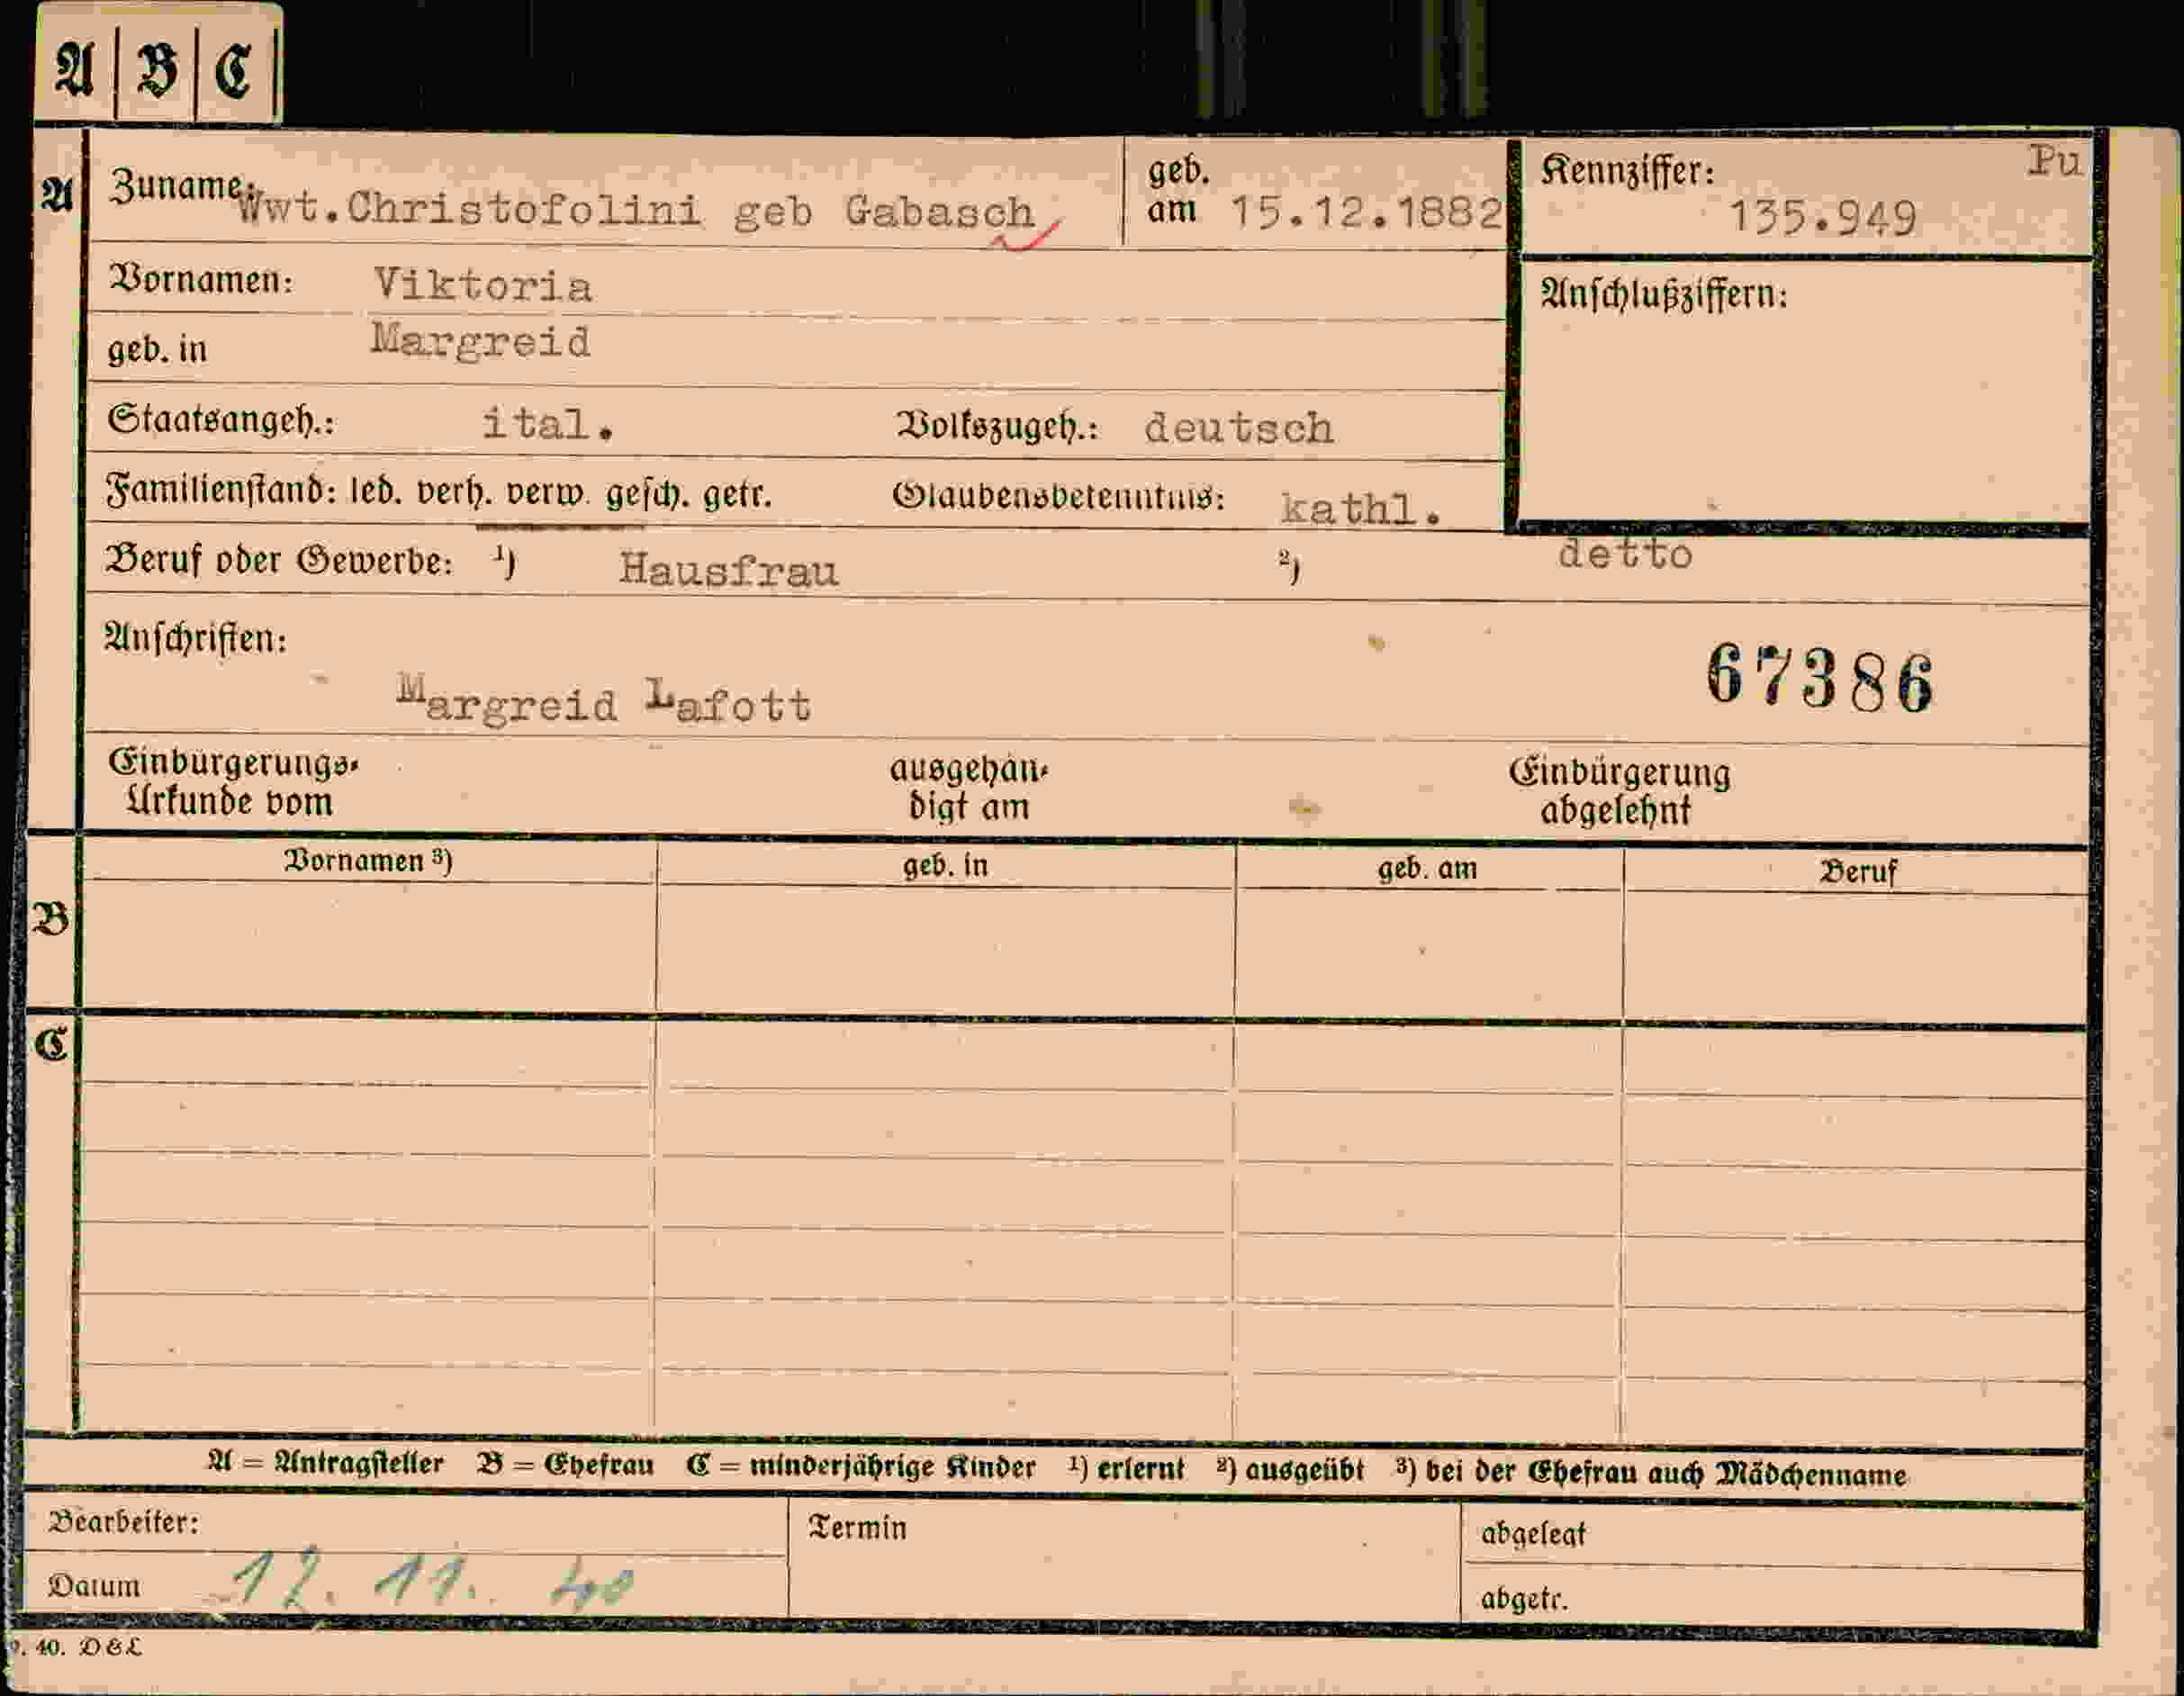 A B C
A Zuname: Wwt.Christofolini geb Gabasch geb. am 15.12.1882 Kennziffer: Pu 135.949
Vornamen: Viktoria Anschlußziffern:
geb. in Margreid
Staatsangeh.: ital. Volkszugeh.: deutsch
Familienstand: led. verh. verw. gesch. getr. Glaubensbekenntnis: kathl.
Beruf oder Gewerbe: ¹) Hausfrau ²) detto
Anschriften: 67386
Margreid Lafott
Einbürgerungs- ausgehän- Einbürgerung
Urkunde vom digt am abgelehnt
Vornamen ³) geb. in geb. am Beruf
B
C
A = Antragsteller B = Ehefrau C = minderjährige Kinder ¹) erlernt ²) ausgeübt ³) bei der Ehefrau auch Mädchenname
Bearbeiter: Termin abgelegt
Datum 12. 11. 40 abgetr.
9. 40. D&L